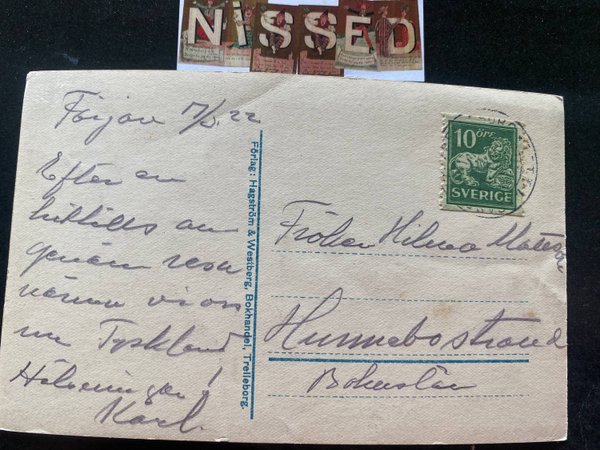 NISSED
Färjan 17/5.22
Efter en
hittills an
genäm resa
närma vi oss
nu Tyskland
Hälsningar!
Karl.
Förlag: Hagström & Westberg, Bokhandel, Trelleborg.
10 ÖRE
SVERIGE
Fröken Hilma
Hunnebostrand
Bohuslän